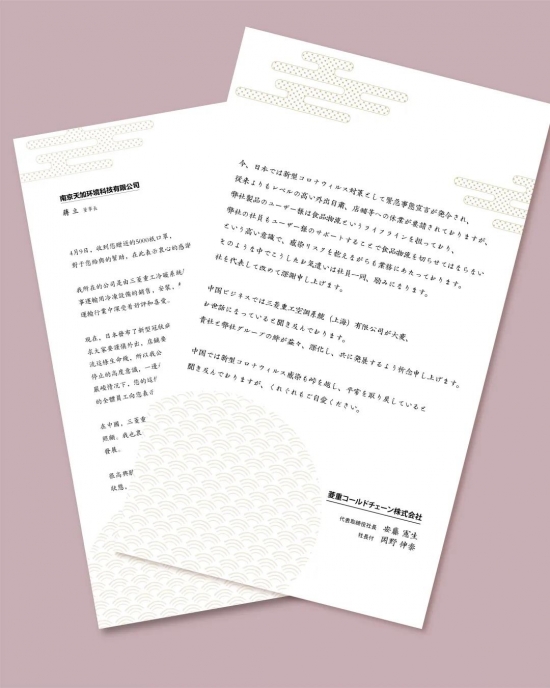 南京天加环境科技有限公司
蒋立 董事长
4月9日，收到您赠送的5000纸口罩，
對于您給與的幫助，在此表示衷心的感謝
我所在的公司是由三菱重工冷暖系統/
事運輸用冷凍設備的銷售，安裝，
運輸行業中深受着好評和喜愛。
現在，日本發布了新型冠狀
求大家要謹慎外出，店鋪要
流這條生命綫，所以我公
停止的高度意識，一邊
嚴峻情況下，您的這
的全體員工向您表示
在中國，三菱重
照顧。我也衷
發展。
很高興
狀態。
今、日本では新型コロナウィルス対策として緊急事態宣言が発令され、
従来よりもレベルの高い外出自粛、店舗等への休業が要請されておりますが、
弊社製品のユーザー様は食品物流というライフラインを担っており、
弊社の社員もユーザー様のサポートすることで食品物流を切らせてはならない
という高い意識で、感染リスクを抱えながらも業務にあたっております。
そのような中でこうしたお気遣いは社員一同、励みになります。
社を代表して改めて深謝申し上げます。
中国ビジネスでは三菱重工空調系統（上海）有限公司が大変、
お世話になっていると聞き及んでおります。
貴社と弊社グループの絆が益々、深化し、共に発展するよう祈念申し上げます。
中国では新型コロナウィルス感染も峠を越し、平常を取り戻していると
聞き及んでおりますが、くれぐれもご自愛ください。
菱重コールドチェーン株式会社
代表取締役社長 安藤 憲生
社長付 因野 紳泰